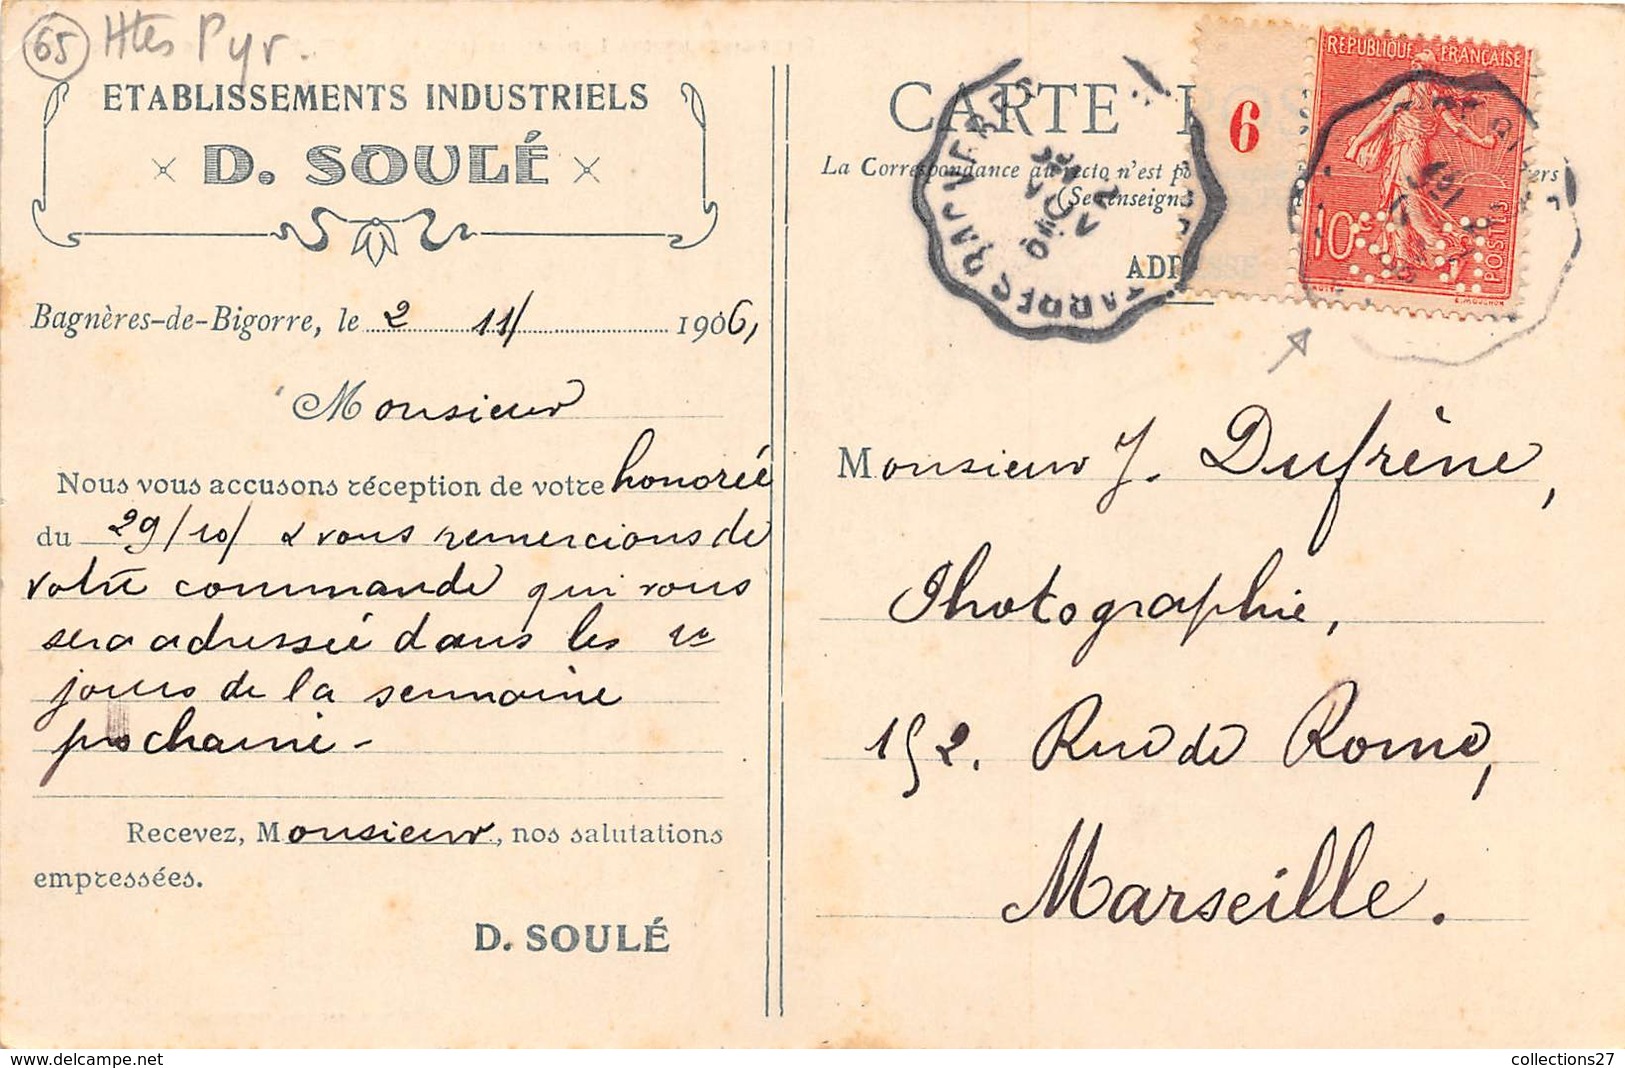 65 Htes Pyr.
ETABLISSEMENTS INDUSTRIELS
D. SOULÉ
Bagnères-de-Bigorre, le 2 11/ 1906,
Monsieur
Nous vous accusons réception de votre honorée
du 29/10/ & vous remercions de
votre commande qui vous
sera adressée dans les 1e
jours de la semaine
prochaine-
Recevez, Monsieur, nos salutations
empressées.
D. SOULÉ
CARTE POS
La Correspondance au recto n'est p
(Se renseign
ADRESSE
6
REPUBLIQUE FRANÇAISE
10c
POSTES
Monsieur J. Dufrène,
Photographie,
152. Rue de Rome,
Marseille.
collections27
www.delcampe.net